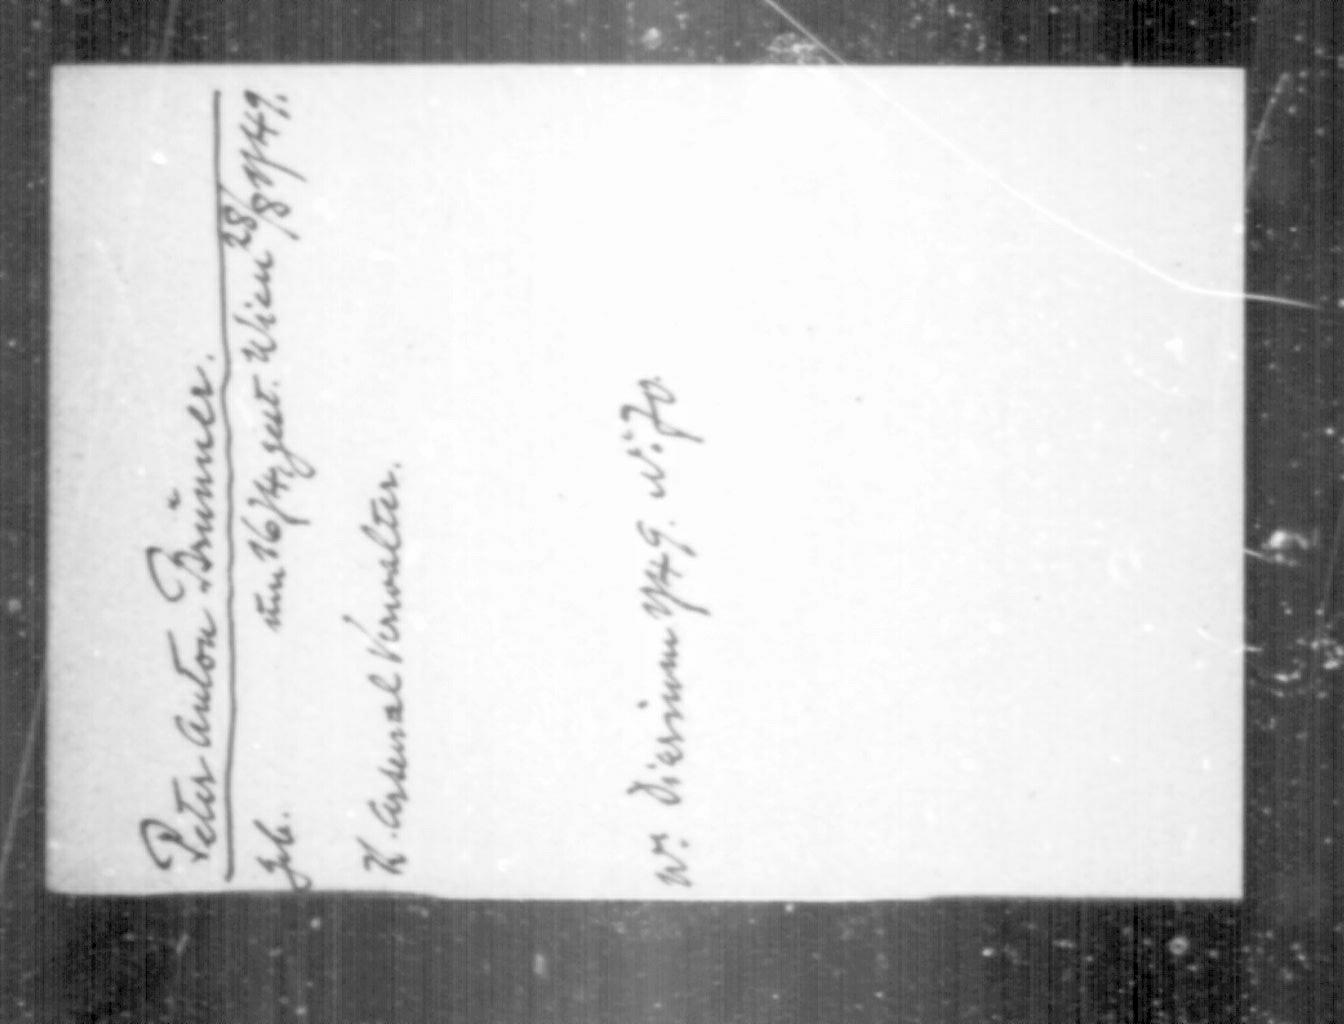 Peter Anton Brünner.
Geb. um 16/4, gest. Wien 28/8 1749.
K. Arsenal Verwalter.
Wr. Diarium 1749. No. 70.